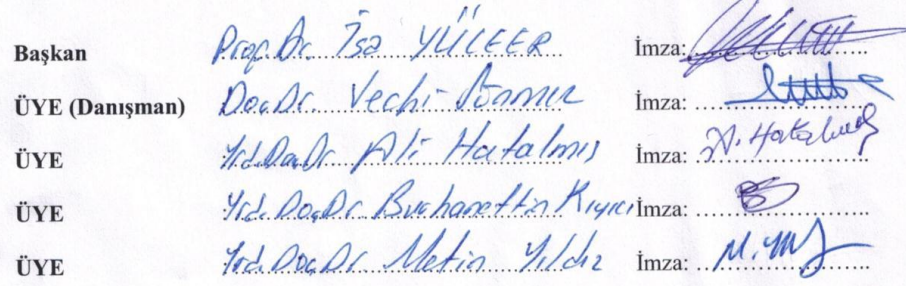 Başkan Prof. Dr. İsa YÜCEER İmza:
ÜYE (Danışman) Doç.Dr. Vechi Sönmez İmza:
ÜYE Yrd.Doç.Dr Ali Hatalmış İmza: A. Hatalmış
ÜYE Yrd. Doç.Dr. Burhanettin Kıyıcı İmza:
ÜYE Yrd.Doç.Dr Metin Yıldız İmza: